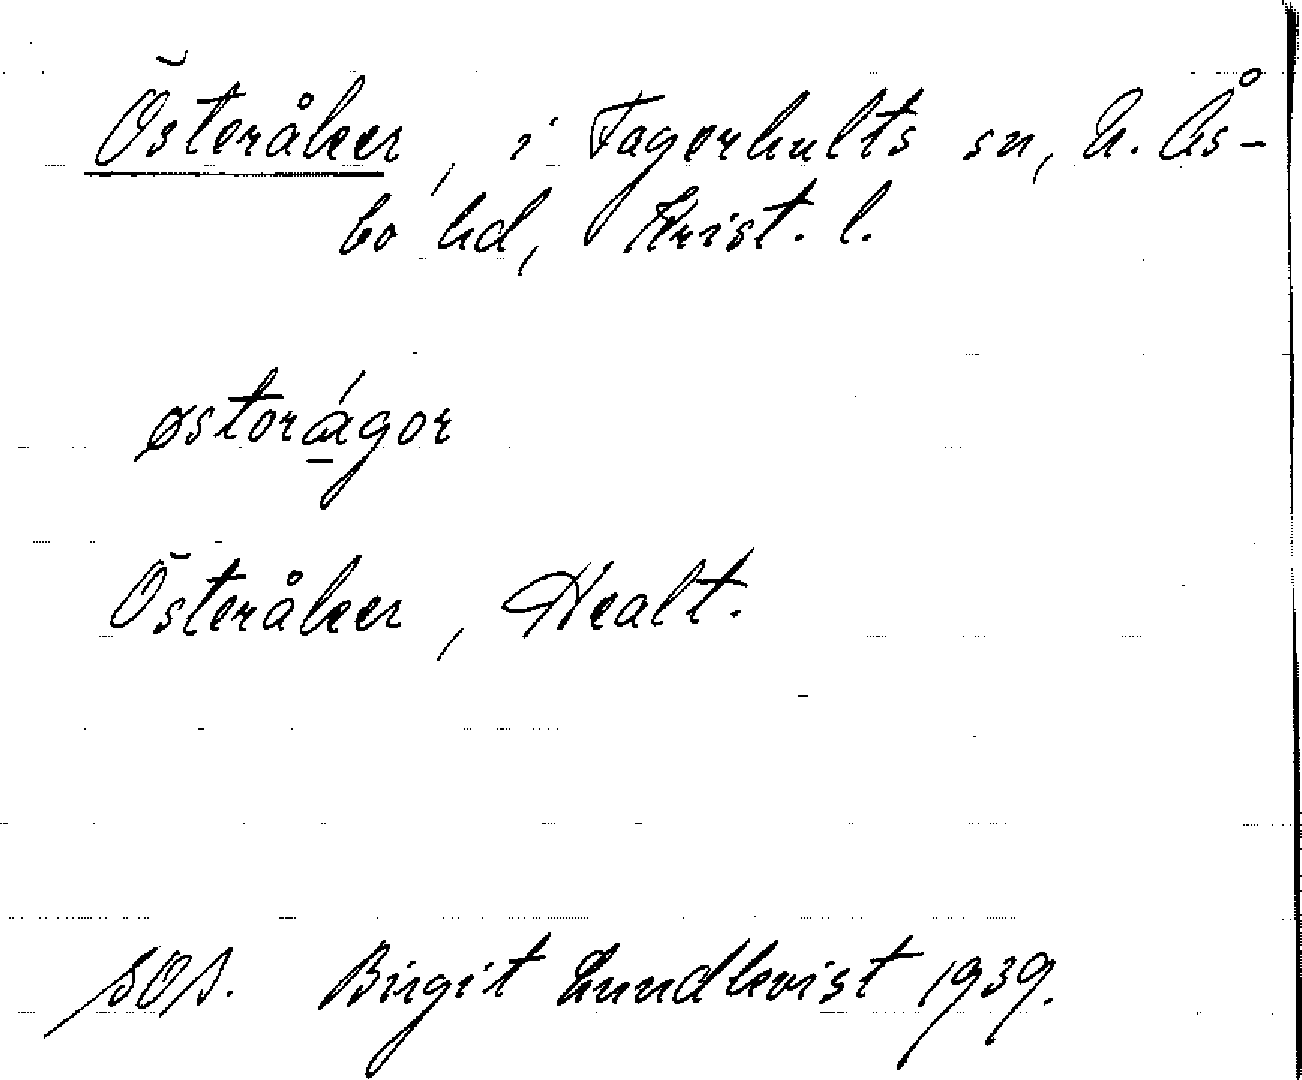 Österåker, i Fagerhults sn, N. Ås-
bo hd, Krist. l.
østərágər
Österåker, Healt.
SOS. Birgit Lundkvist 1939.